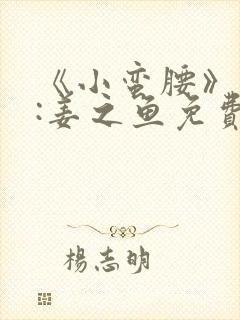 《小蛮腰》
:姜之鱼免費
楊志明